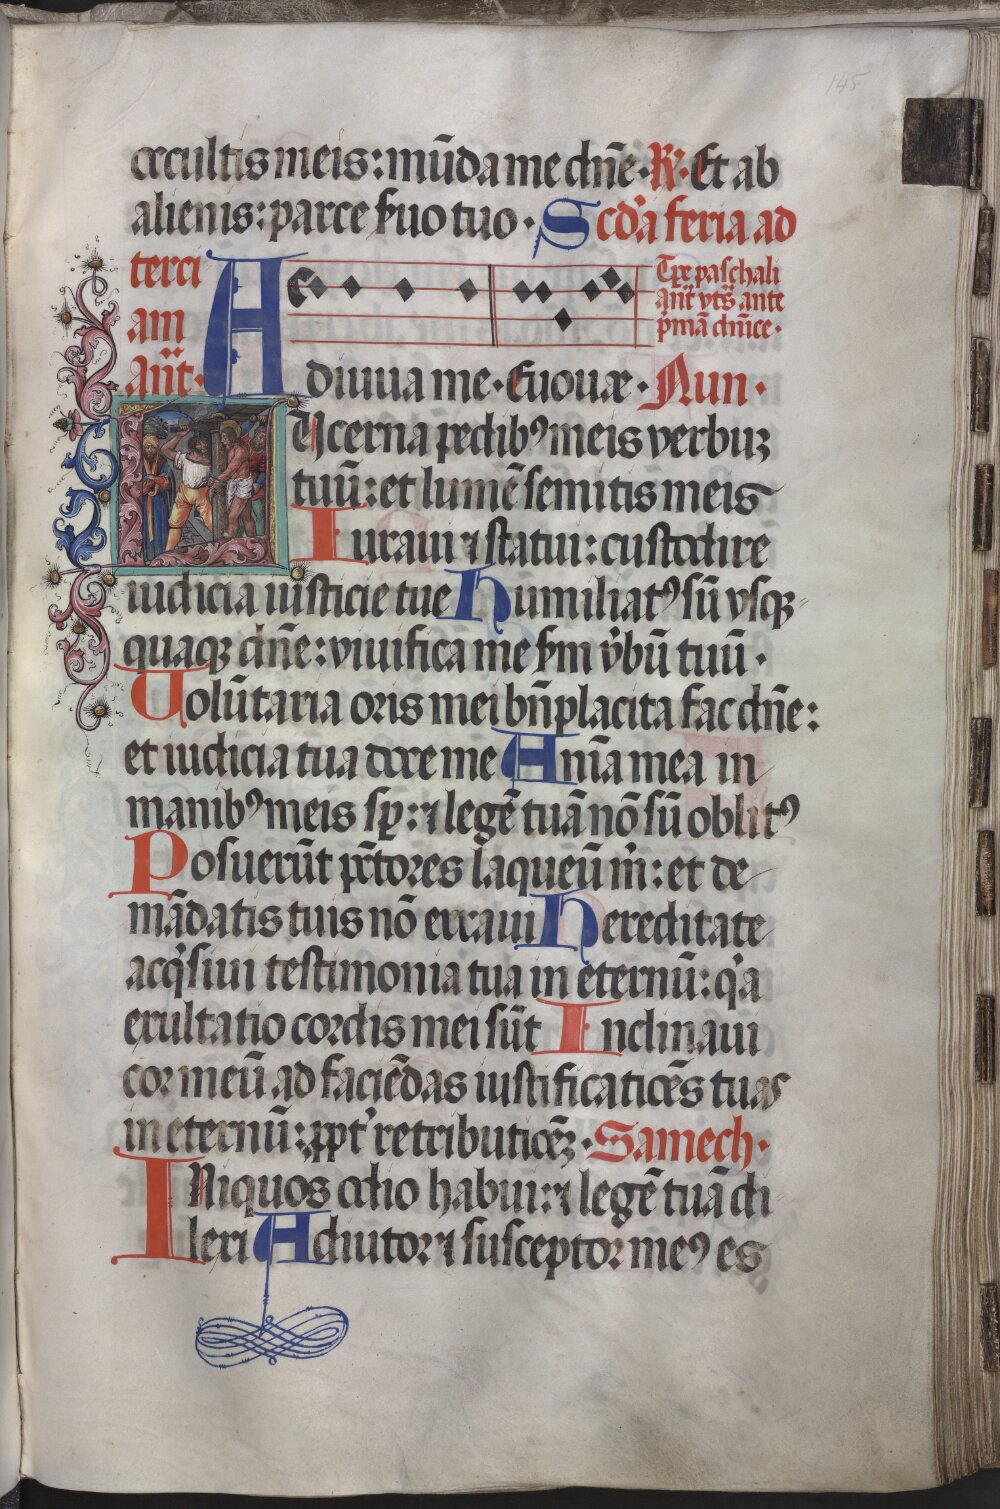 145
occultis meis: mūda me dn̄e· R̸· Et ab
alienis: parce ẜuo tuo· Scd̓a feria ad
terci
am
An̄t·
Tp̱e paſchali
an̄t vt s̄ ante
p̓mā dn̄ice·
Adiuua me· Euouæ· Nun·
Lucerna pedibꝰ meis verbuꝫ
tuū: et lumē ſemitis meis
Iuraui ⁊ ſtatui: cuſtodire
iudicia iuſticie tue Humiliatꝰ ſū vſqꝫ
quaqꝫ dn̄e: viuifica me ẜm v̓bū tuū·
Volūtaria oris mei bn̄placita fac dn̄e:
et iudicia tua doce me Anīa mea in
manibꝰ meis ſꝑ: ⁊ legē tuā nō ſū oblitꝰ
Poſuerūt pctōres laqueū m̓: et de
mādatis tuis nō erraui Hereditate
acq̓ſiui teſtimonia tua in eternū: q̓a
exultatio cordis mei ſūt Inclinaui
cor meū ad faciēdas iuſtificatiōes tuas
in eternū: ꝓpt̓ retributiōeꝫ· Samech·
Iniquos odio habui: ⁊ legē tuā di
lexi Adiutor ⁊ ſuſceptor meꝰ es